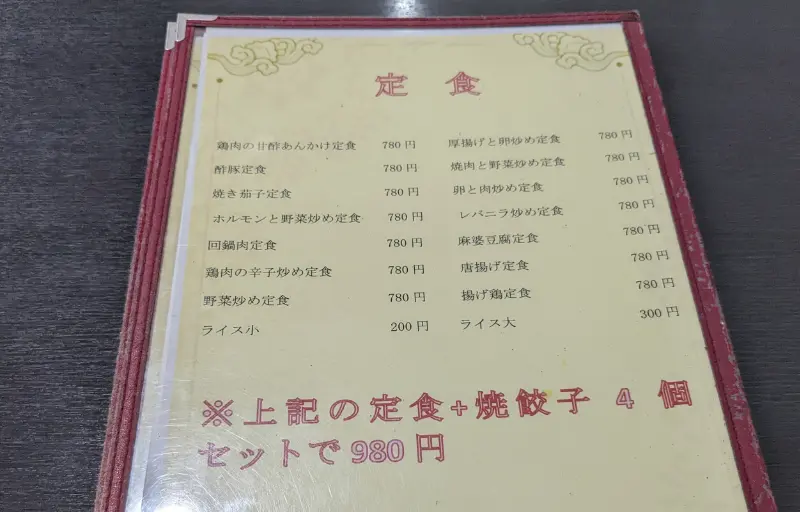 定食
鶏肉の甘酢あんかけ定食 780円 厚揚げと卵炒め定食 780円
酢豚定食 780円 焼肉と野菜炒め定食 780円
焼き茄子定食 780円 卵と肉炒め定食 780円
ホルモンと野菜炒め定食 780円 レバニラ炒め定食 780円
回鍋肉定食 780円 麻婆豆腐定食 780円
鶏肉の辛子炒め定食 780円 唐揚げ定食 780円
野菜炒め定食 780円 揚げ鶏定食 780円
ライス小 200円 ライス大 300円
※上記の定食+焼餃子 4 個
セットで980円